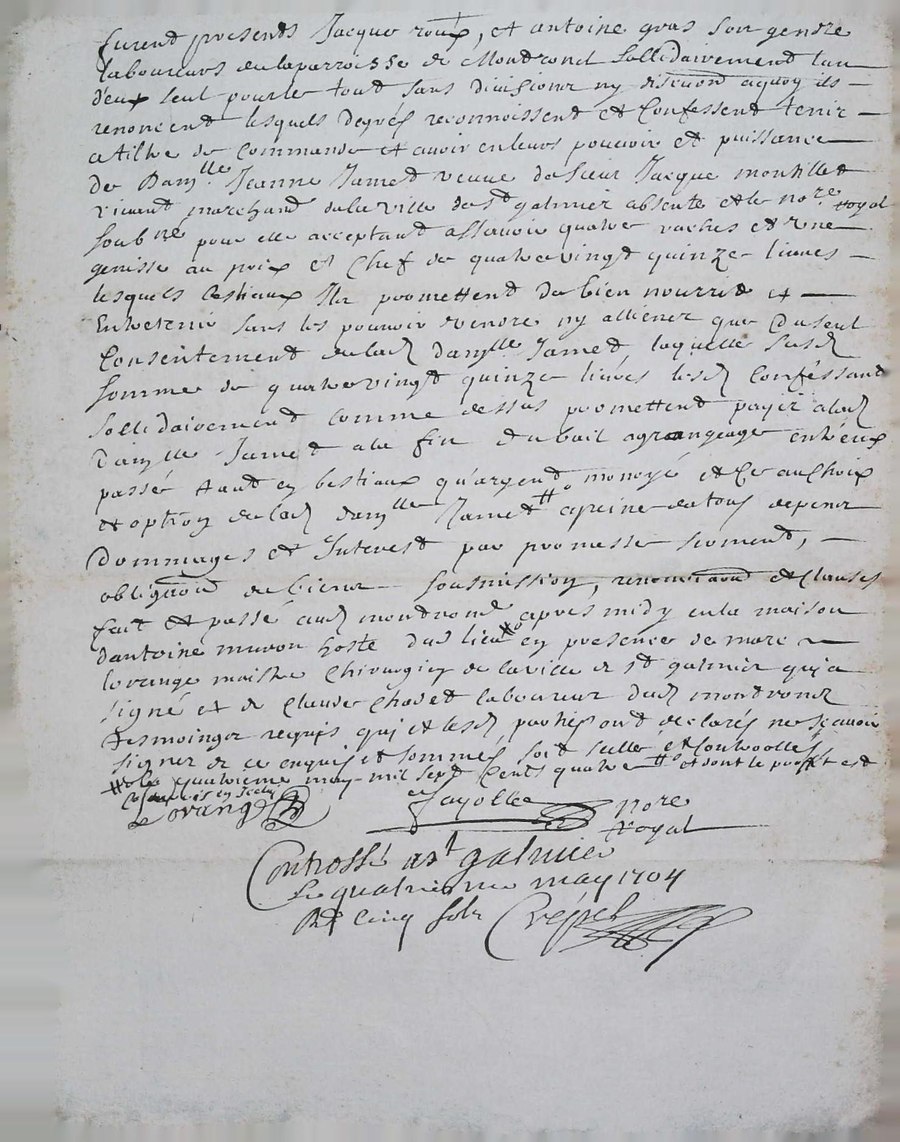 furent presents Jacque roux, et antoine gras son gendre
laboureurs de la parroisse de Mondrond sollidairement lun
deux seul pour le tout sans divisionz ny discution aquoy ils
renoncent lesquels degrés reconnoissent et Confessent tenir
atiltre de Commande et avoir en leurs pouvoir et puissance
de Damlle Jeanne Jamet veuve de sieur Jacque montillet
vivant marchand de la ville de st galmier absente et le nore royal
soubné pour elle acceptant assavoir quatre vaches et une
genisse au prix et Chef de quatrevingt quinze livres
lesquels bestiaux Ilz promettent de bien nourrir et
Entretenir sans les pouvoir vendre ny alliener que du seul
Consentement de lad damlle Jamet, laquelle susd
somme de quatrevingt quinze livres lesd Conféssant
sollidairement comme dessus promettent payer alad
Damlle Jamet ala fin du bail agrangeage entreux
passé tant en bestiaux qu'argent monoyé et Ce au Choix
et option de lad damlle Jamet # apeine de tous depenz
Dommages et Interest par promesse serment,
obligaōn de bienz sousmission, renonciaōn et Clauses
fait et passé aud mondrond apres midy en la maison
dantoine muron hoste dud lieu en presence de marc
lorange maistre Chirurgien de la ville de st galmier qui a
signé et de Claude Chavet laboureur dud mondrond
tesmoingz requis qui et lesd parties ont declarés ne scavoir
signer de ce enquis et sommés, soit scellé et Controollés
le quatrieme may mil sept Cents quatre # et dont le proffit est
Lorange Fayolle nore
royal
Controllé a st galmier
Le quatrieme may 1704
Rd Cinq solz Crépet